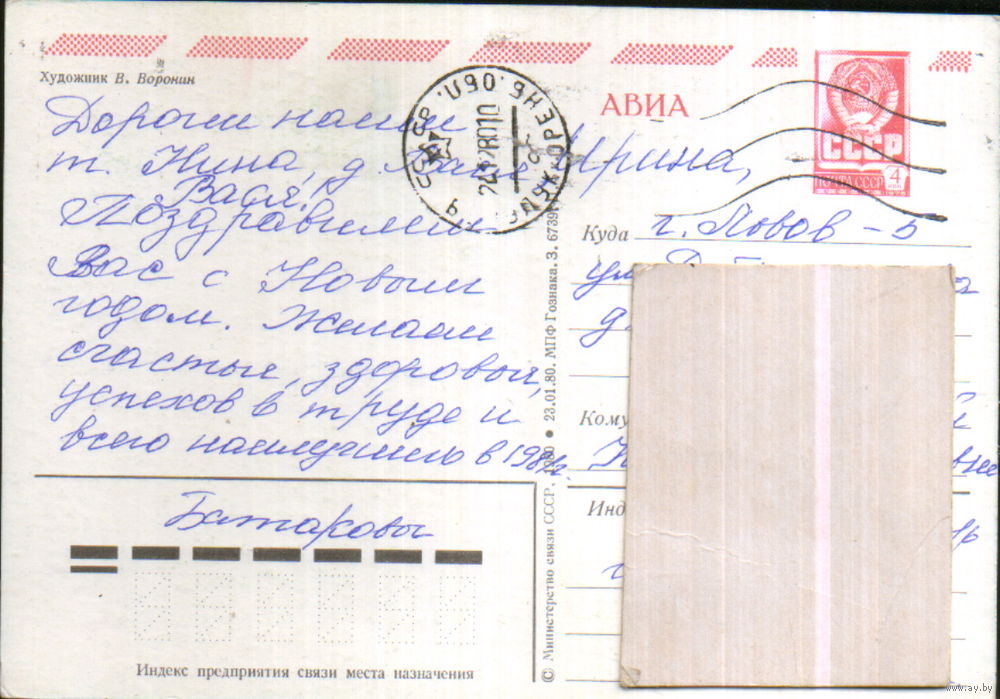 Художник В. Воронин
АВИА
СССР
ПОЧТА СССР
4
коп
Дорогие наши
т. Нина, д. Ирина,
Вася!
Поздравляем
Вас с Новым
годом. Желаем
счастья, здоровья,
успехов в труде и
всего наилучшего в 1981г.
Батароевы
Куда г. Львов - 5
ул.
д.
Кому
Инд
© Министерство связи СССР, 1980 ● 23.01.80. МПФ Гознака. З. 6739
Индекс предприятия связи места назначения
www.ay.by